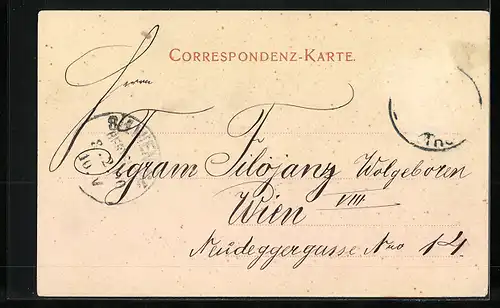 CORRESPONDENZ-KARTE.
Herrn
Tigram Filojanz Wolgeboren
Wien VIII.
Neudeggergasse Nro 14